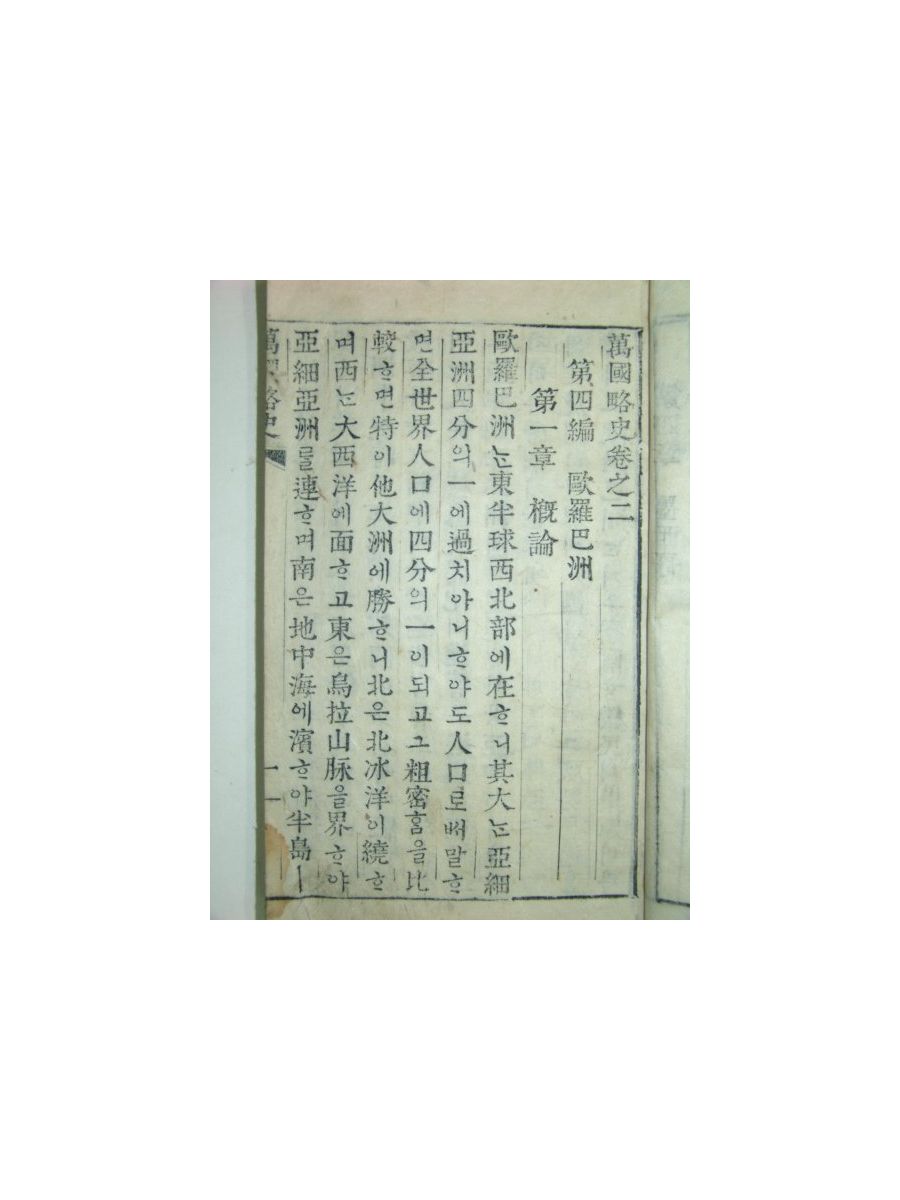 萬國略史卷之二
第四編 歐羅巴洲
第一章 槪論
歐羅巴洲ᄂᆞᆫ東半球西北部에在ᄒᆞ니其大ᄂᆞᆫ亞細
亞洲四分의一에過치아니ᄒᆞ야도人口로ᄡᅥ말ᄒᆞ
면全世界人口에四分의一이되고그粗密홈을比
較ᄒᆞ면特이他大洲에勝ᄒᆞ니北은北冰洋이繞ᄒᆞ
며西ᄂᆞᆫ大西洋에面ᄒᆞ고東은烏拉山脉을界ᄒᆞ야
亞細亞洲를連ᄒᆞ며南은地中海에濱ᄒᆞ야半島ㅣ
萬國略史
一